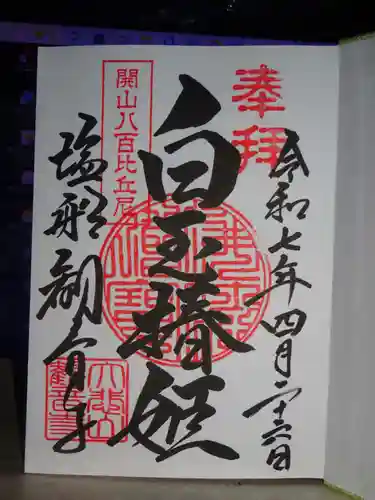 奉拝
令和七年四月二十六日
白玉椿姫
開山八百比丘尼
塩船観音寺